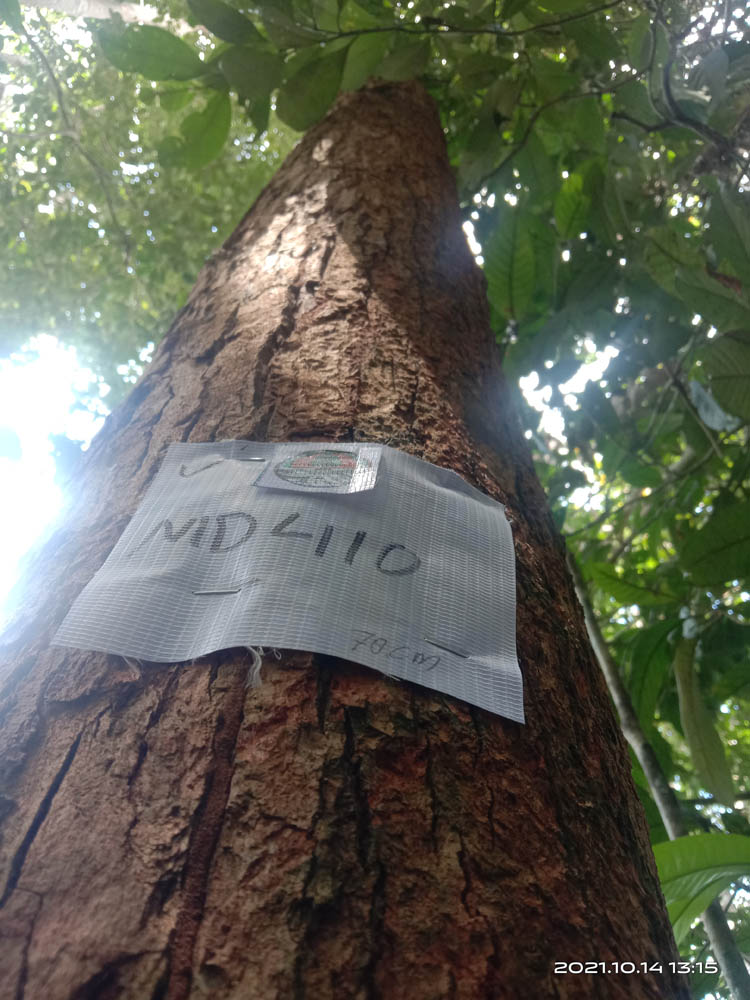 MDL110
70cm
2021.10.14 13:15